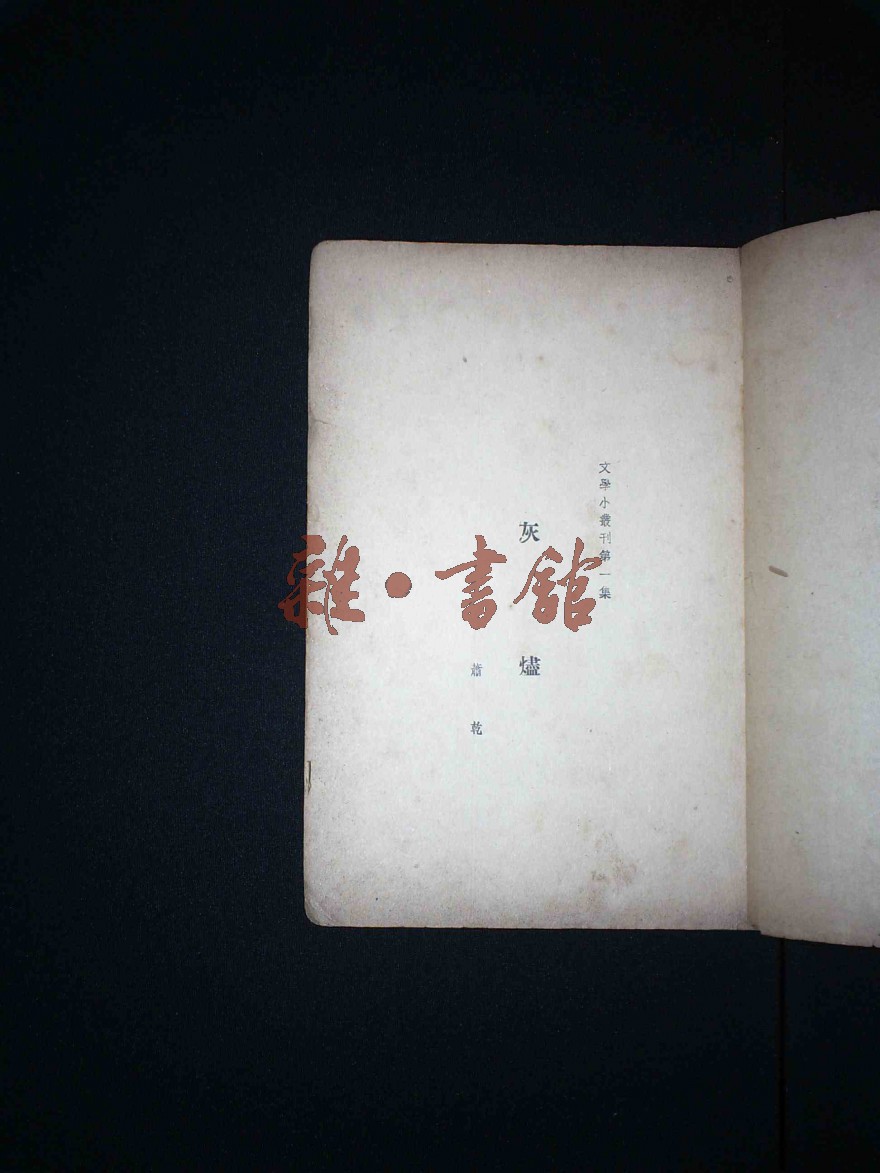 文學小叢刊第一集
灰燼
蕭乾
雜·書館